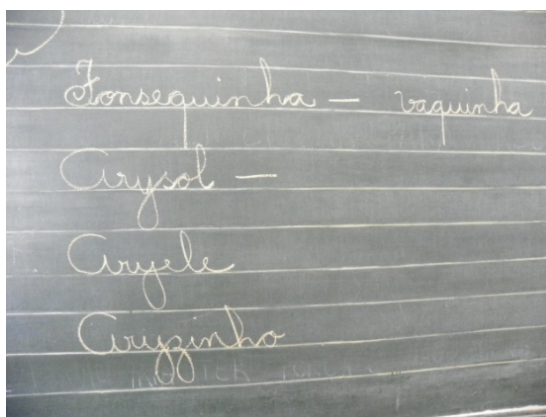 Fonsequinha — vaquinha
Arysol —
Aryele
Aryzinho